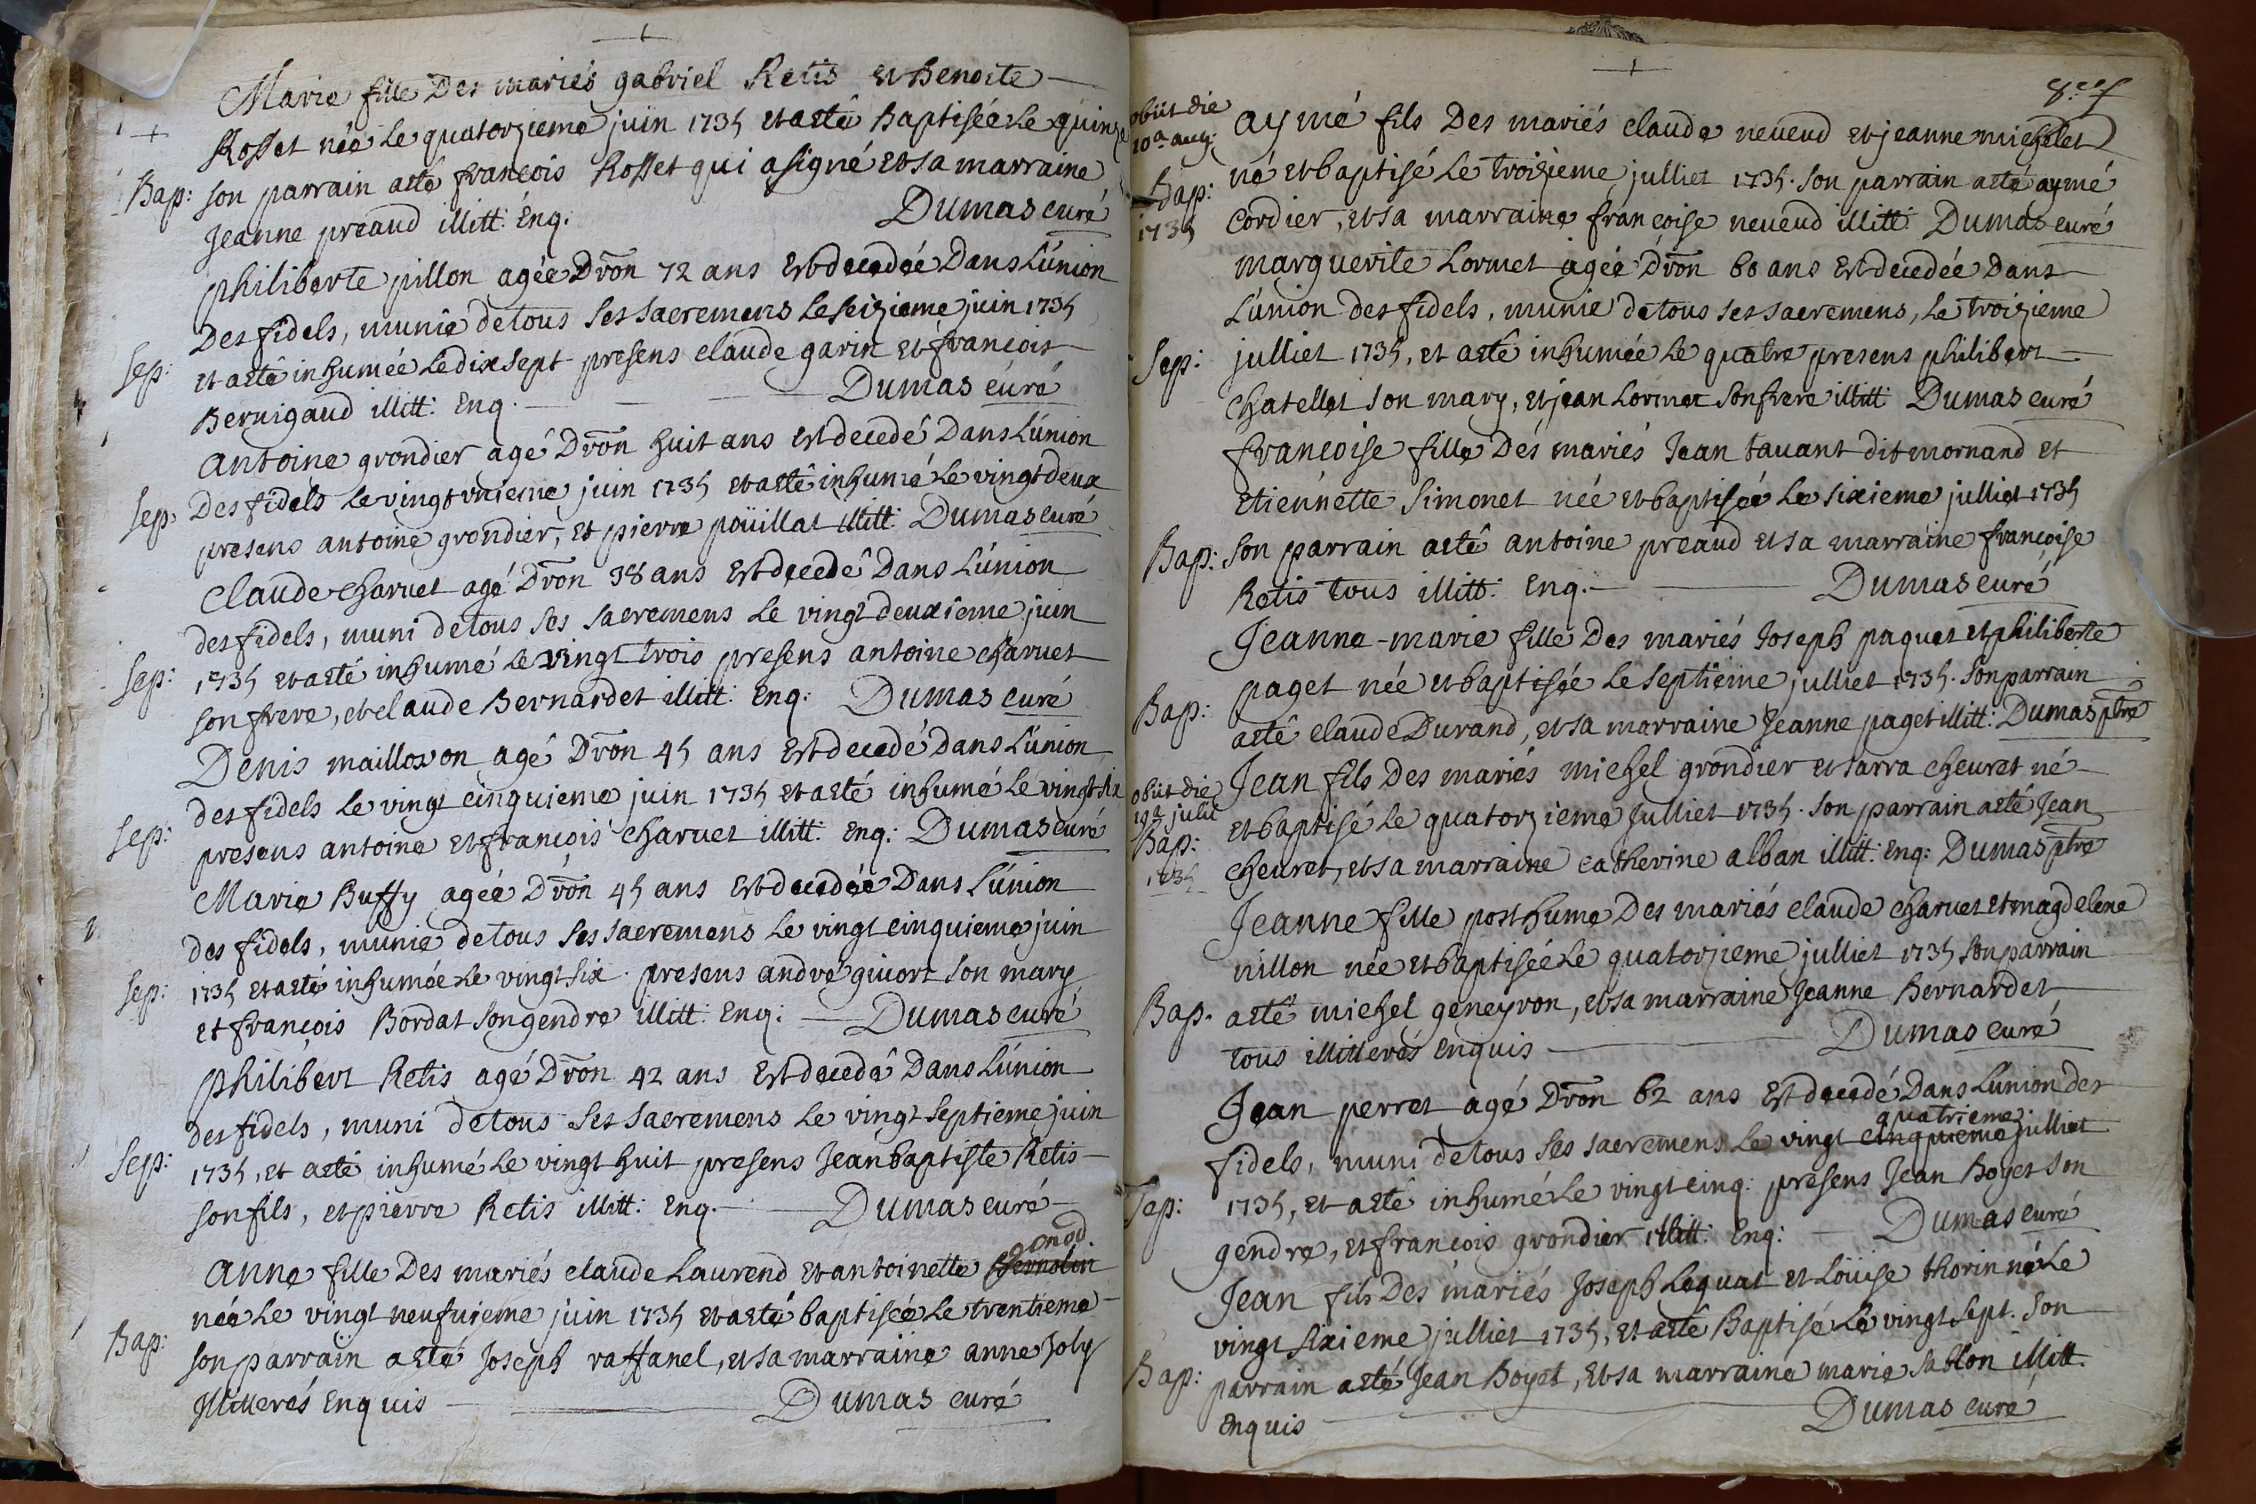 Marie fille Des mariés gabriel Retis et Benoite
Rosset née le quatorzieme juin 1735 et a etê Baptisée le quinze
Bap: son parrain a etê francois Rosset qui a signé et sa marraine
Jeanne preaud illitt: Enq. Dumas curé
philiberte pillon agée Dron 72 ans Est decedée Dans L'union
Des fidels, munie de tous ses sacremens le seizieme juin 1735
Sep: et a etê inhumée le dix sept presens claude garin et françois
Bernigaud illitt: Enq. Dumas curé
antoine grondier agé Dron huit ans Est decedé Dans L'union
Sep: Des fidels le vingt unieme juin 1735 et a etê inhumé le vingt deux
presens antoine grondier, et pierre poüillat illitt: Dumas curé
Claude Charuet agé Dron 38 ans Est decedê Dans L'union
des fidels, muni de tous ses sacremens le vingt deuxieme juin
Sep: 1735 et a eté inhumé le vingt trois presens antoine charuet
son frere, et claude Bernardet illitt: Enq: Dumas curé
Denis mailloson agé Dron 45 ans Est decedé Dans L'union
des fidels le vingt cinquieme juin 1735 et a eté inhumé le vingt six
Sep: presens antoine et françois charuet illitt: Enq: Dumas curé
Marie Buffy agée Dron 45 ans Est decedée Dans L'union
des fidels, munie de tous ses sacremens le vingt cinquieme juin
Sep: 1735 et a eté inhumée le vingt six presens andré giuort son mary
et françois Bordat son gendre illitt: Enq: Dumas curé
philibert Retis agé Dron 42 ans Est decedê Dans L'union
des fidels, muni de tous ses sacremens le vingt septieme juin
Sep: 1735, et a eté inhumé le vingt huit presens Jean baptiste Retis
son fils, et pierre Retis illitt: Enq. Dumas curé
gonod
anne fille Des mariés claude Laurend et antoinette
née le vingt neufuieme juin 1735 et a eté baptisée le trentieme
Bap: son parrain a eté Joseph raffanel, et sa marraine anne Joly
Illitterés Enquis Dumas curé
obiit die
10a aug:
aymé fils Des mariés claude neueud et jeanne michelet
Bap: né et baptisé le troizieme julliet 1735. son parrain a eté aymé
1735 Cordier, et sa marraine françoise neueud illitt: Dumas curé
marguerite Lormet agée Dron 60 ans Est decedée Dans
L'union des fidels, munie de tous ses sacremens, le troizieme
Sep: julliet 1735, et a etê inhumée le quatre presens philibert
chatellet son mary, et jean Lormet son frere illitt: Dumas curé
françoise fille Des mariés Jean tauant dit mornand et
Etiennette Simonet née et baptisée le sixieme julliet 1735
Bap: son parrain a etê antoine preaud et sa marraine françoise
Retis tous illitt: Enq: Dumas curé
Jeanne-marie fille Des mariés Joseph paquet et philiberte
paget née et baptisée le septieme julliet 1735. son parrain
Bap: a etê claude Durand, et sa marraine Jeanne paget illitt: Dumas ptre
Jean fils Des mariés michel grondier et sarra cheuret né
obiit die
19a julii
Bap: et baptisé le quatorzieme Julliet 1735. son parrain a eté Jean
1735 cheuret, et sa marraine catherine alban illitt: Enq: Dumas ptre
Jeanne fille posthume Des mariés claude charuet et magdelene
nillon née et baptisée le quatorzieme julliet 1735 son parrain
Bap. a etê michel geneyron, et sa marraine Jeanne Bernardet
tous illitterés Enquis Dumas curé
Jean perret agé Dron 62 ans Est decedé Dans L'union des
quatrieme
fidels, muni de tous ses sacremens le vingt cinquieme julliet
Sep: 1735, et a etê inhumé le vingt cinq: presens Jean Boyet son
gendre, et françois grondier illitt: Enq: Dumas curé
Jean fils Des mariés Joseph Loquat et Loüise thorin né le
vingt sixieme julliet 1735, et a etê Baptisé le vingt sept. son
Bap: parrain a eté Jean Boyet, et sa marraine marie sublon illitt.
Enquis Dumas curé